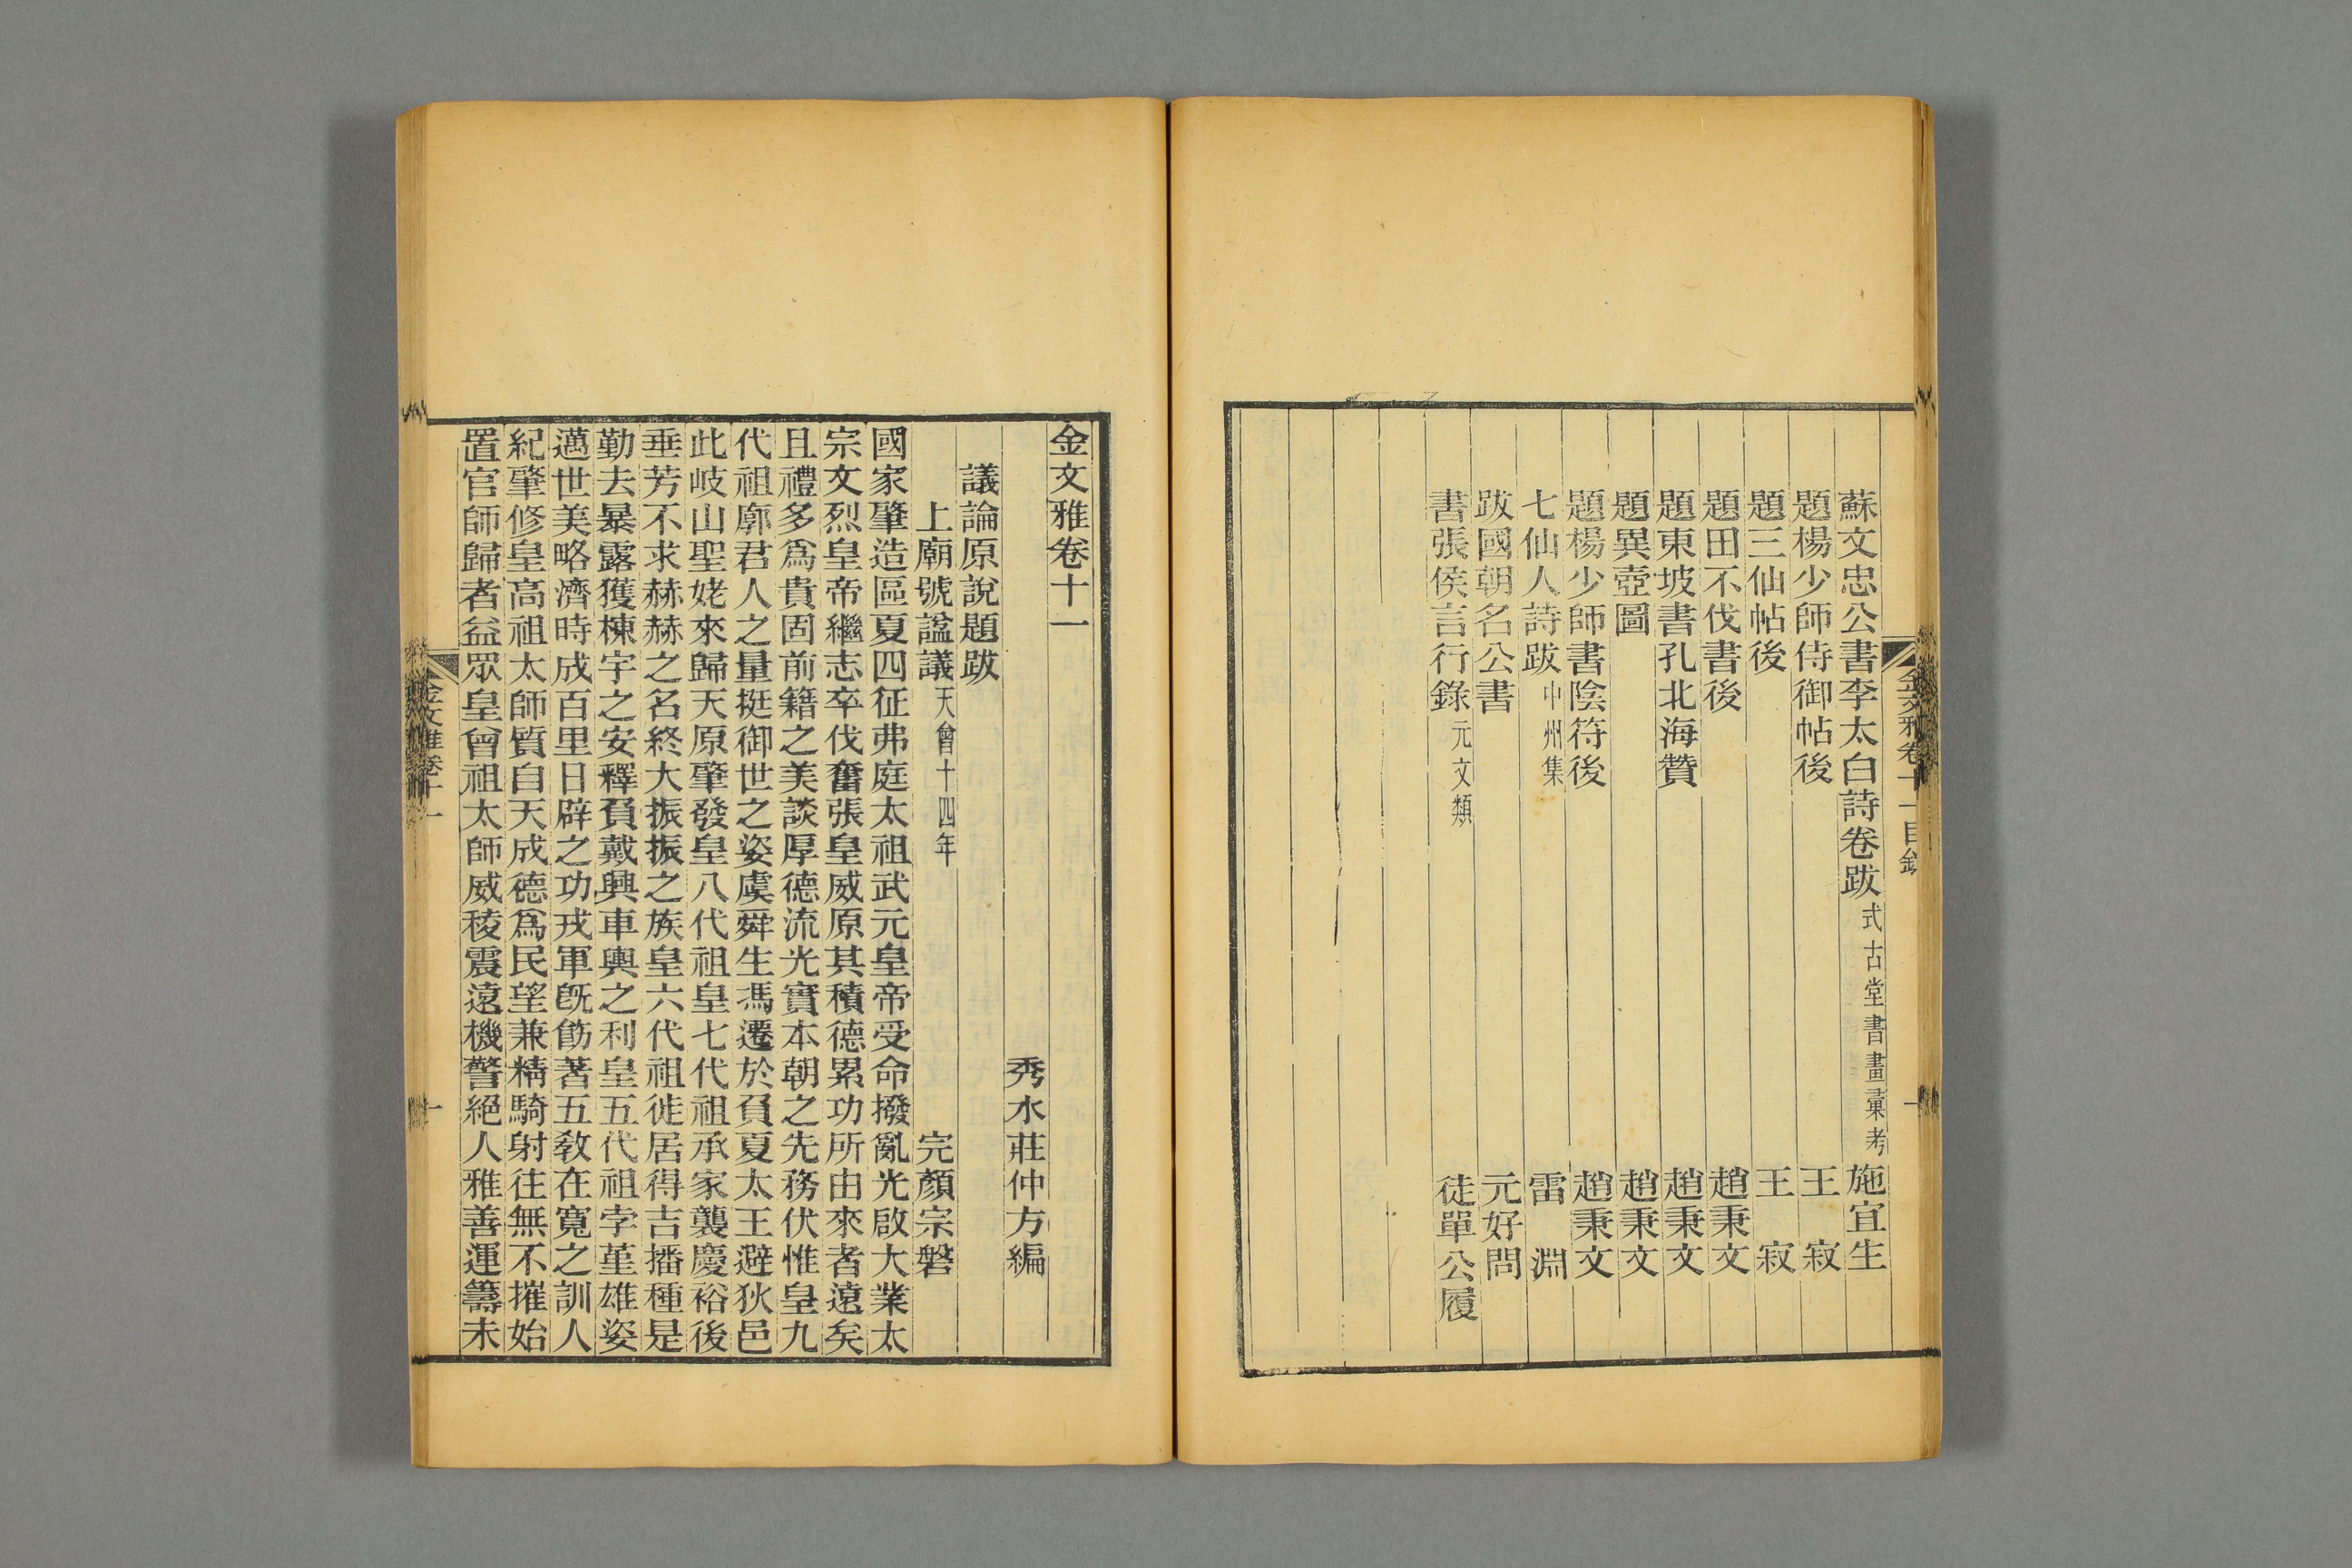 金文雅卷十一目錄
一
蘇文忠公書李太白詩卷跋 式古堂書畫彙考 施宜生
題楊少師侍御帖後 王 寂
題三仙帖後 王 寂
題田不伐書後 趙秉文
題東坡書孔北海贊 趙秉文
題異壺圖 趙秉文
題楊少師書陰符後 趙秉文
七仙人詩跋 中州集 雷 淵
跋國朝名公書 元好問
書張侯言行錄 元文類 徒單公履
金文雅卷十一
秀水莊仲方編
議論原說題跋
上廟號諡議 天會十四年 完顏宗磐
國家肇造區夏四征弗庭太祖武元皇帝受命撥亂光啟大業太
宗文烈皇帝繼志卒伐奮張皇威原其積德累功所由來者遠矣
且禮多爲貴固前籍之美談厚德流光實本朝之先務伏惟皇九
代祖廓君人之量挺御世之姿虞舜生馮遷於負夏太王避狄邑
此岐山聖姥來歸天原肇發皇八代祖皇七代祖承家襲慶裕後
垂芳不求赫赫之名終大振振之族皇六代祖徙居得吉播種是
勤去暴露獲棟宇之安釋負戴興車輿之利皇五代祖孛堇雄姿
邁世美略濟時成百里日辟之功戎軍旣飭著五敎在寬之訓人
紀肇修皇高祖太師質自天成德爲民望兼精騎射往無不摧始
置官師歸者益眾皇曾祖太師威稜震遠機警絕人雅善運籌未
金文雅卷十一
一